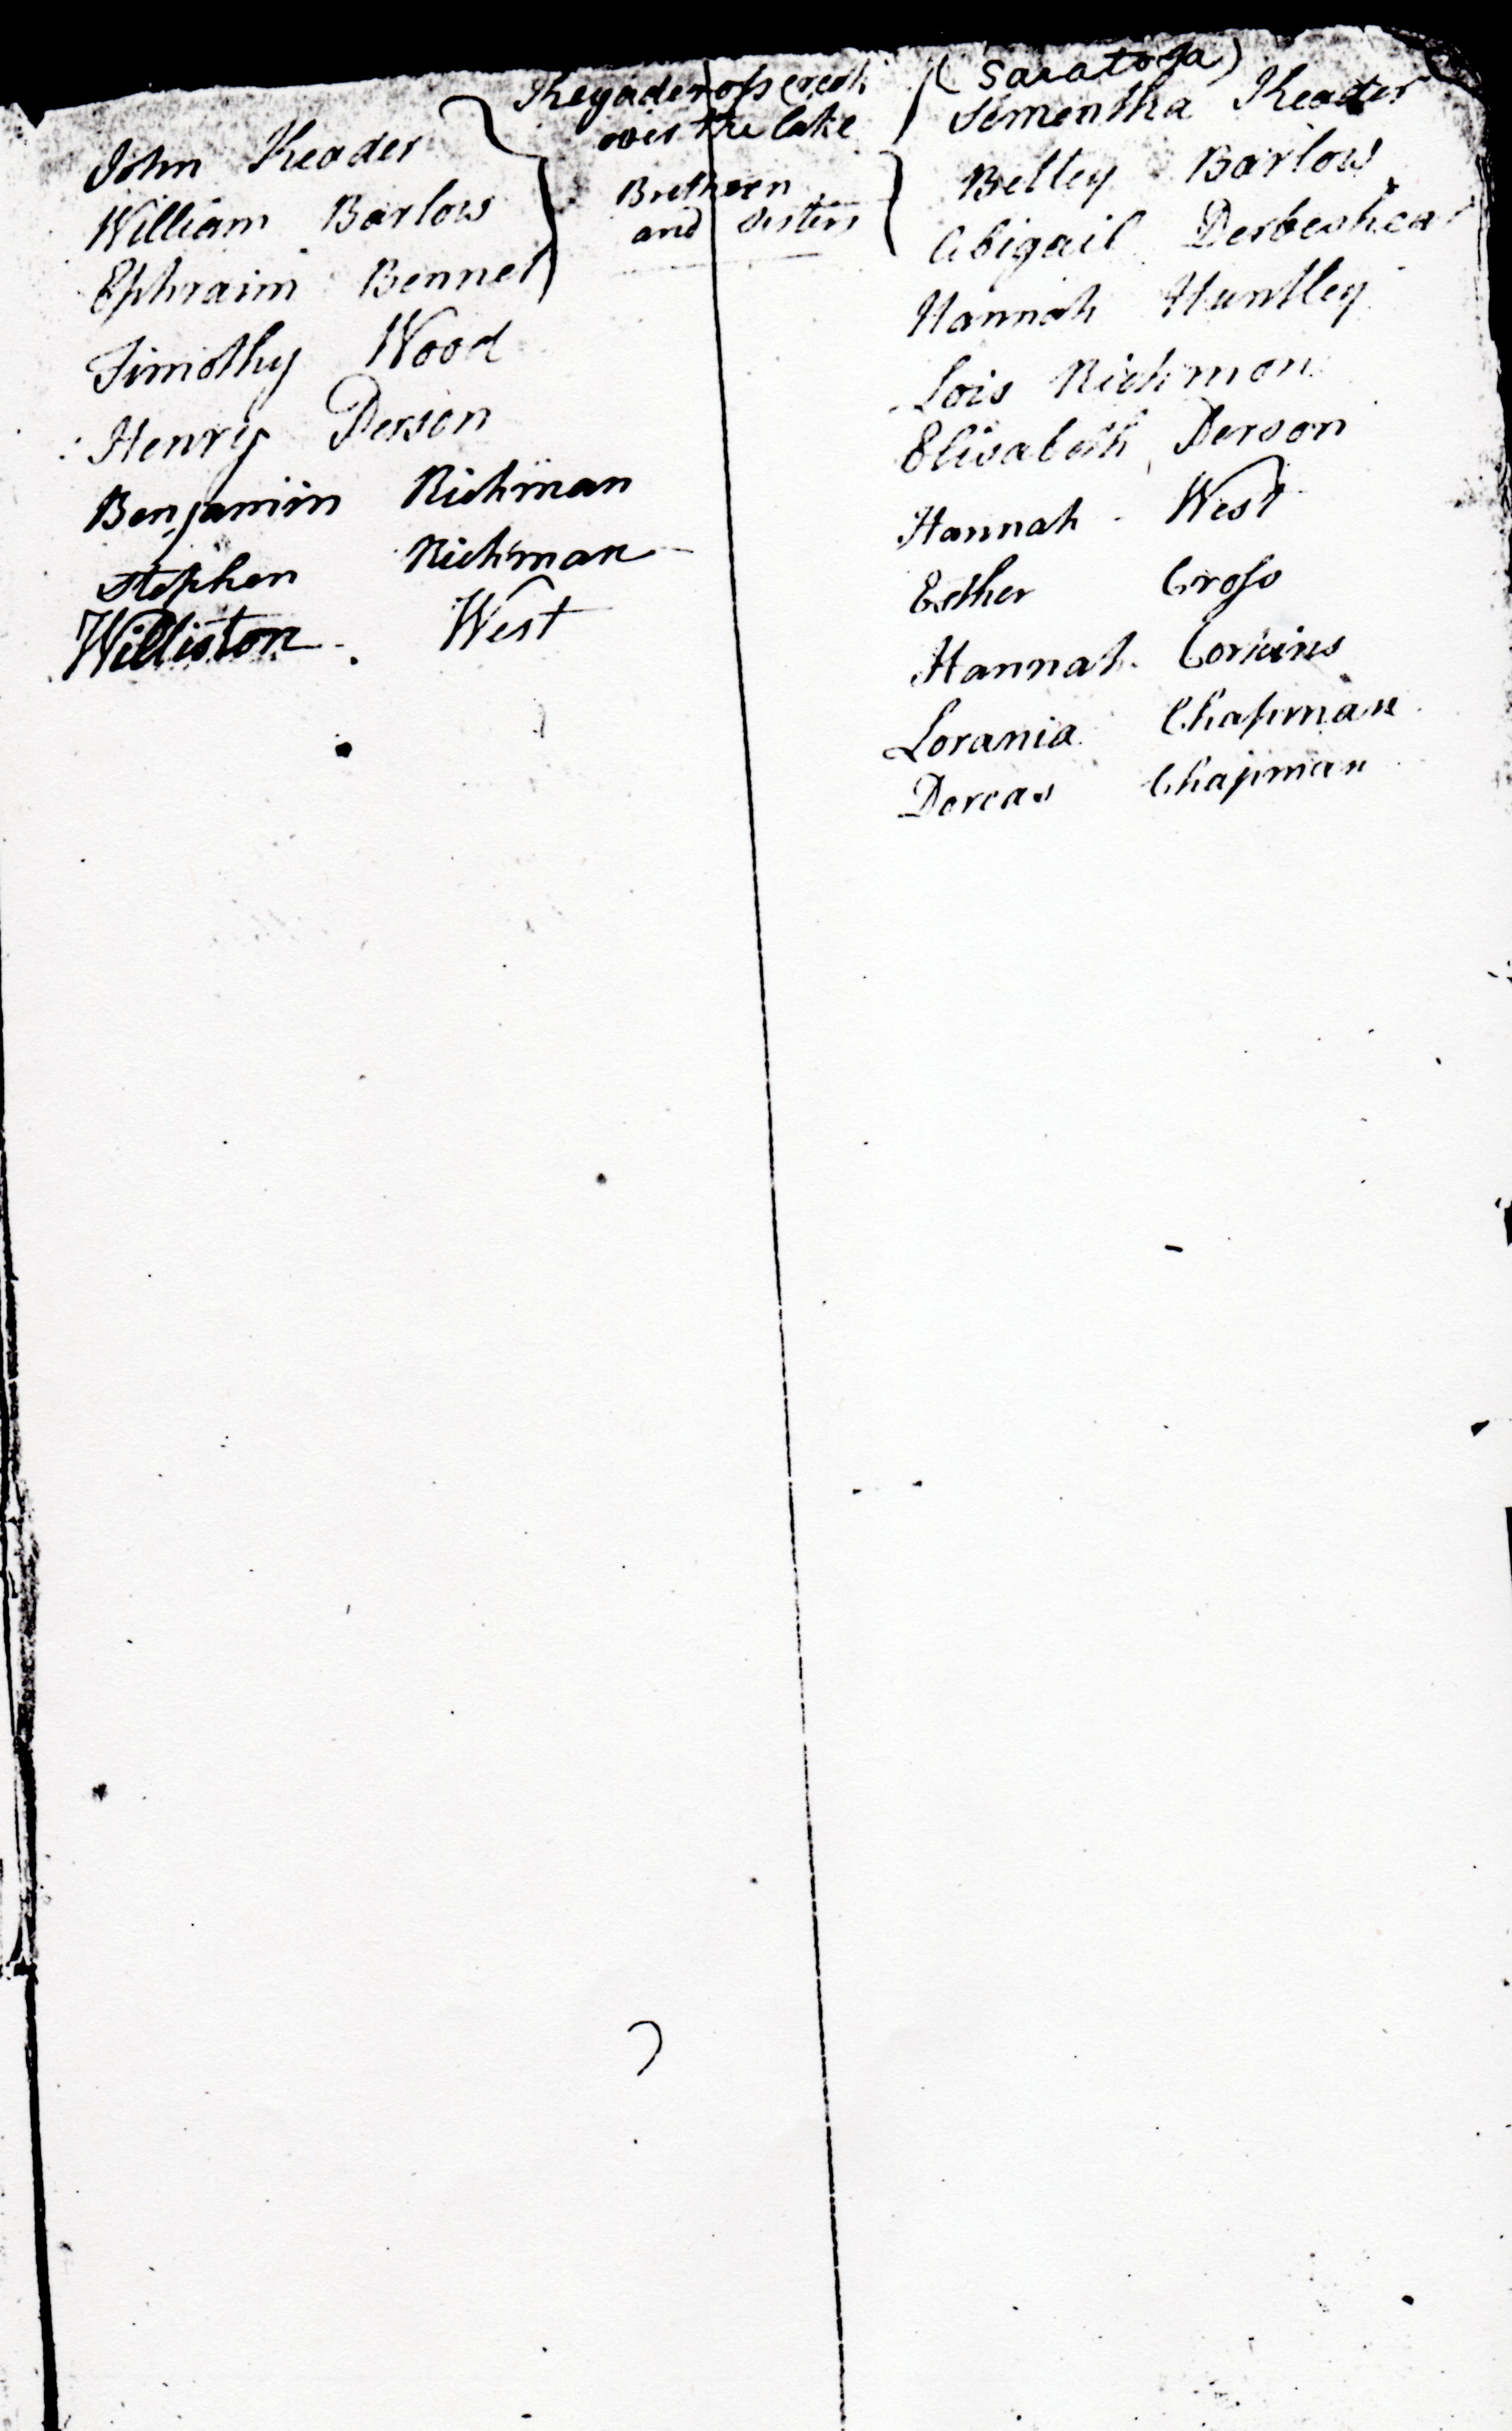 (Saratoga)
Kegaderossereek
over the lake
Brethern
and Sisters
John Reader
William Barlow
Ephraim Bennet
Timothy Wood
Henry Derson
Benjamin Richman
Stephen Richman
Williston West
Sementha Reader
Betley Barlow
Abigail Derbeshear
Hannah Huntley
Lois Richmon
Elisabeth Derson
Hannah West
Esther Cross
Hannah Corkins
Lorania Chapman
Dorcas Chapman